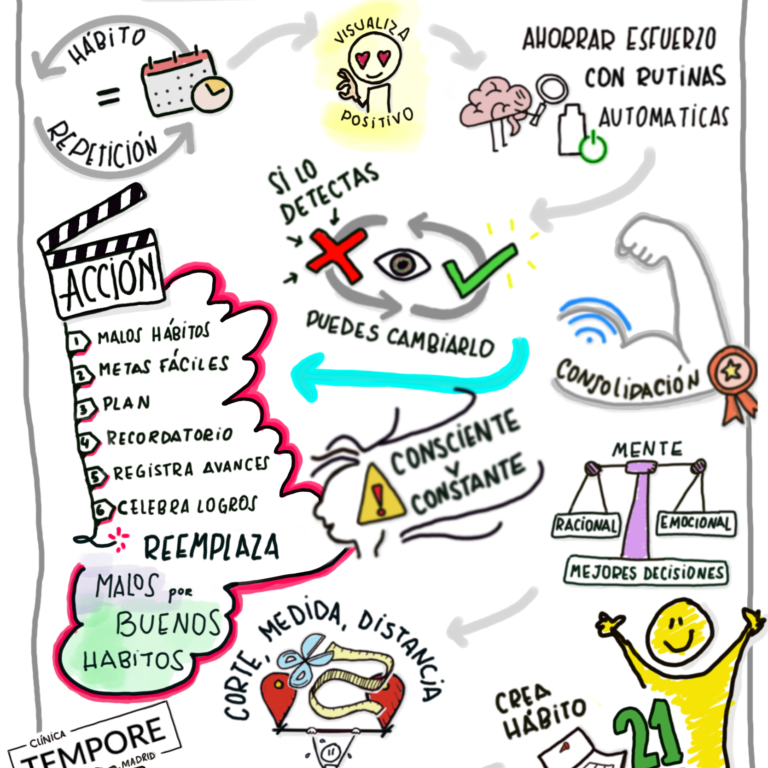 HÁBITO
=
REPETICIÓN
VISUALIZA
POSITIVO
AHORRAR ESFUERZO
CON RUTINAS
AUTOMATICAS
SI LO
DETECTAS
PUEDES CAMBIARLO
ACCIÓN
1 MALOS HÁBITOS
2 METAS FÁCILES
3 PLAN
4 RECORDATORIO
5 REGISTRA AVANCES
6 CELEBRA LOGROS
REEMPLAZA
MALOS POR
BUENOS
HABITOS
CONSOLIDACIÓN
CONSCIENTE
Y
CONSTANTE
MENTE
RACIONAL
EMOCIONAL
MEJORES DECISIONES
CORTE, MEDIDA, DISTANCIA
CREA
HÁBITO
21
CLÍNICA
TEMPORE
MADRID